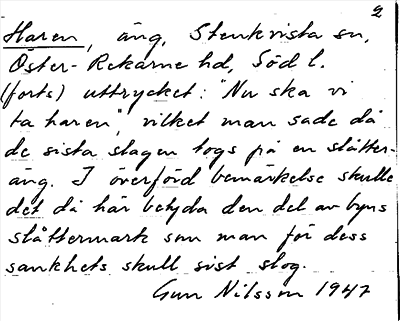 2
Haren, äng, Stenkvista sn,
Öster-Rekarne hd, Södl.
(forts) uttrycket: "Nu ska vi
ta haren", vilket man sade då
de sista slagen togs på en slåtter-
äng. I överförd bemärkelse skulle
det då här betyda den del av byns
slåttermark som man för dess
sankhets skull sist slog.
Gun Nilsson 1947